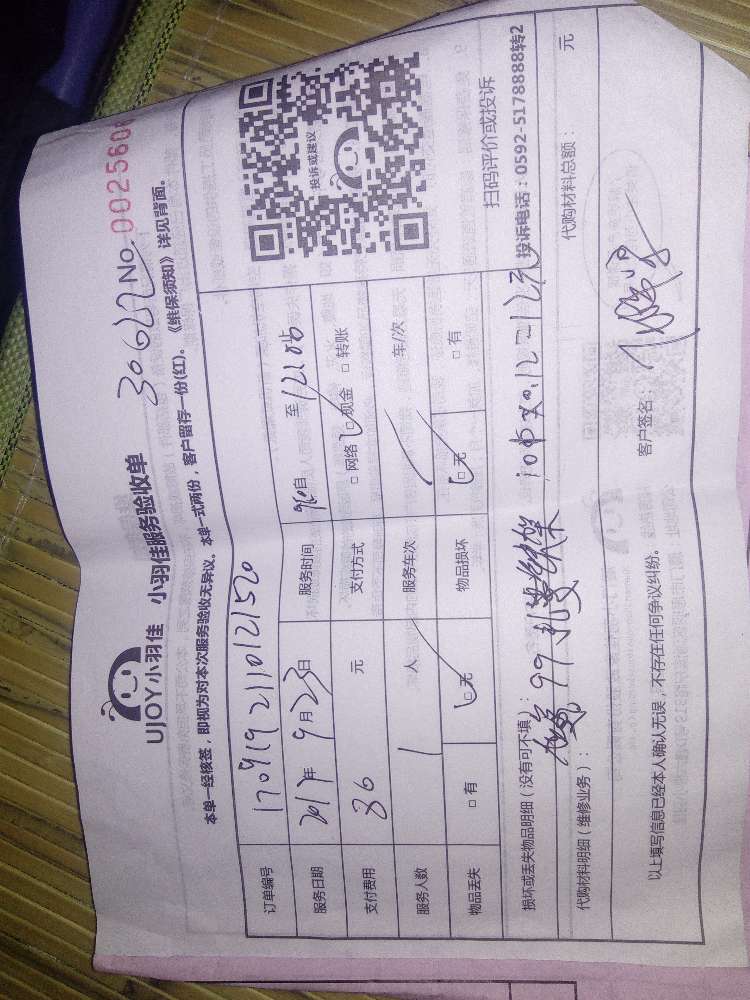 UJOY小羽佳 小羽佳服务验收单 30622 No. 0025606
本单一经核签，即视为对本次服务验收无异议。本单一式两份，客户留存一份(红)。《维保须知》详见背面。
订单编号 1709192110121520
服务日期 2017年 9月23日 服务时间 自 至
支付费用 36 元 支付方式 □网络 □现金 □转账
服务人数 1 人 服务车次 车/次
物品丢失 □有 □无 物品损坏 □无 □有
投诉或建议
扫码评价或投诉
投诉电话：0592-5178888转2
损坏或丢失物品明细（没有可不填）：
代购材料明细（维修业务）： 代购材料总额： 元
以上填写信息已经本人确认无误，不存在任何争议纠纷。
客户签名：